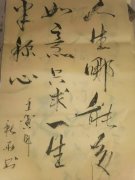 人生哪能多
如意只求一生
半称心
壬寅年